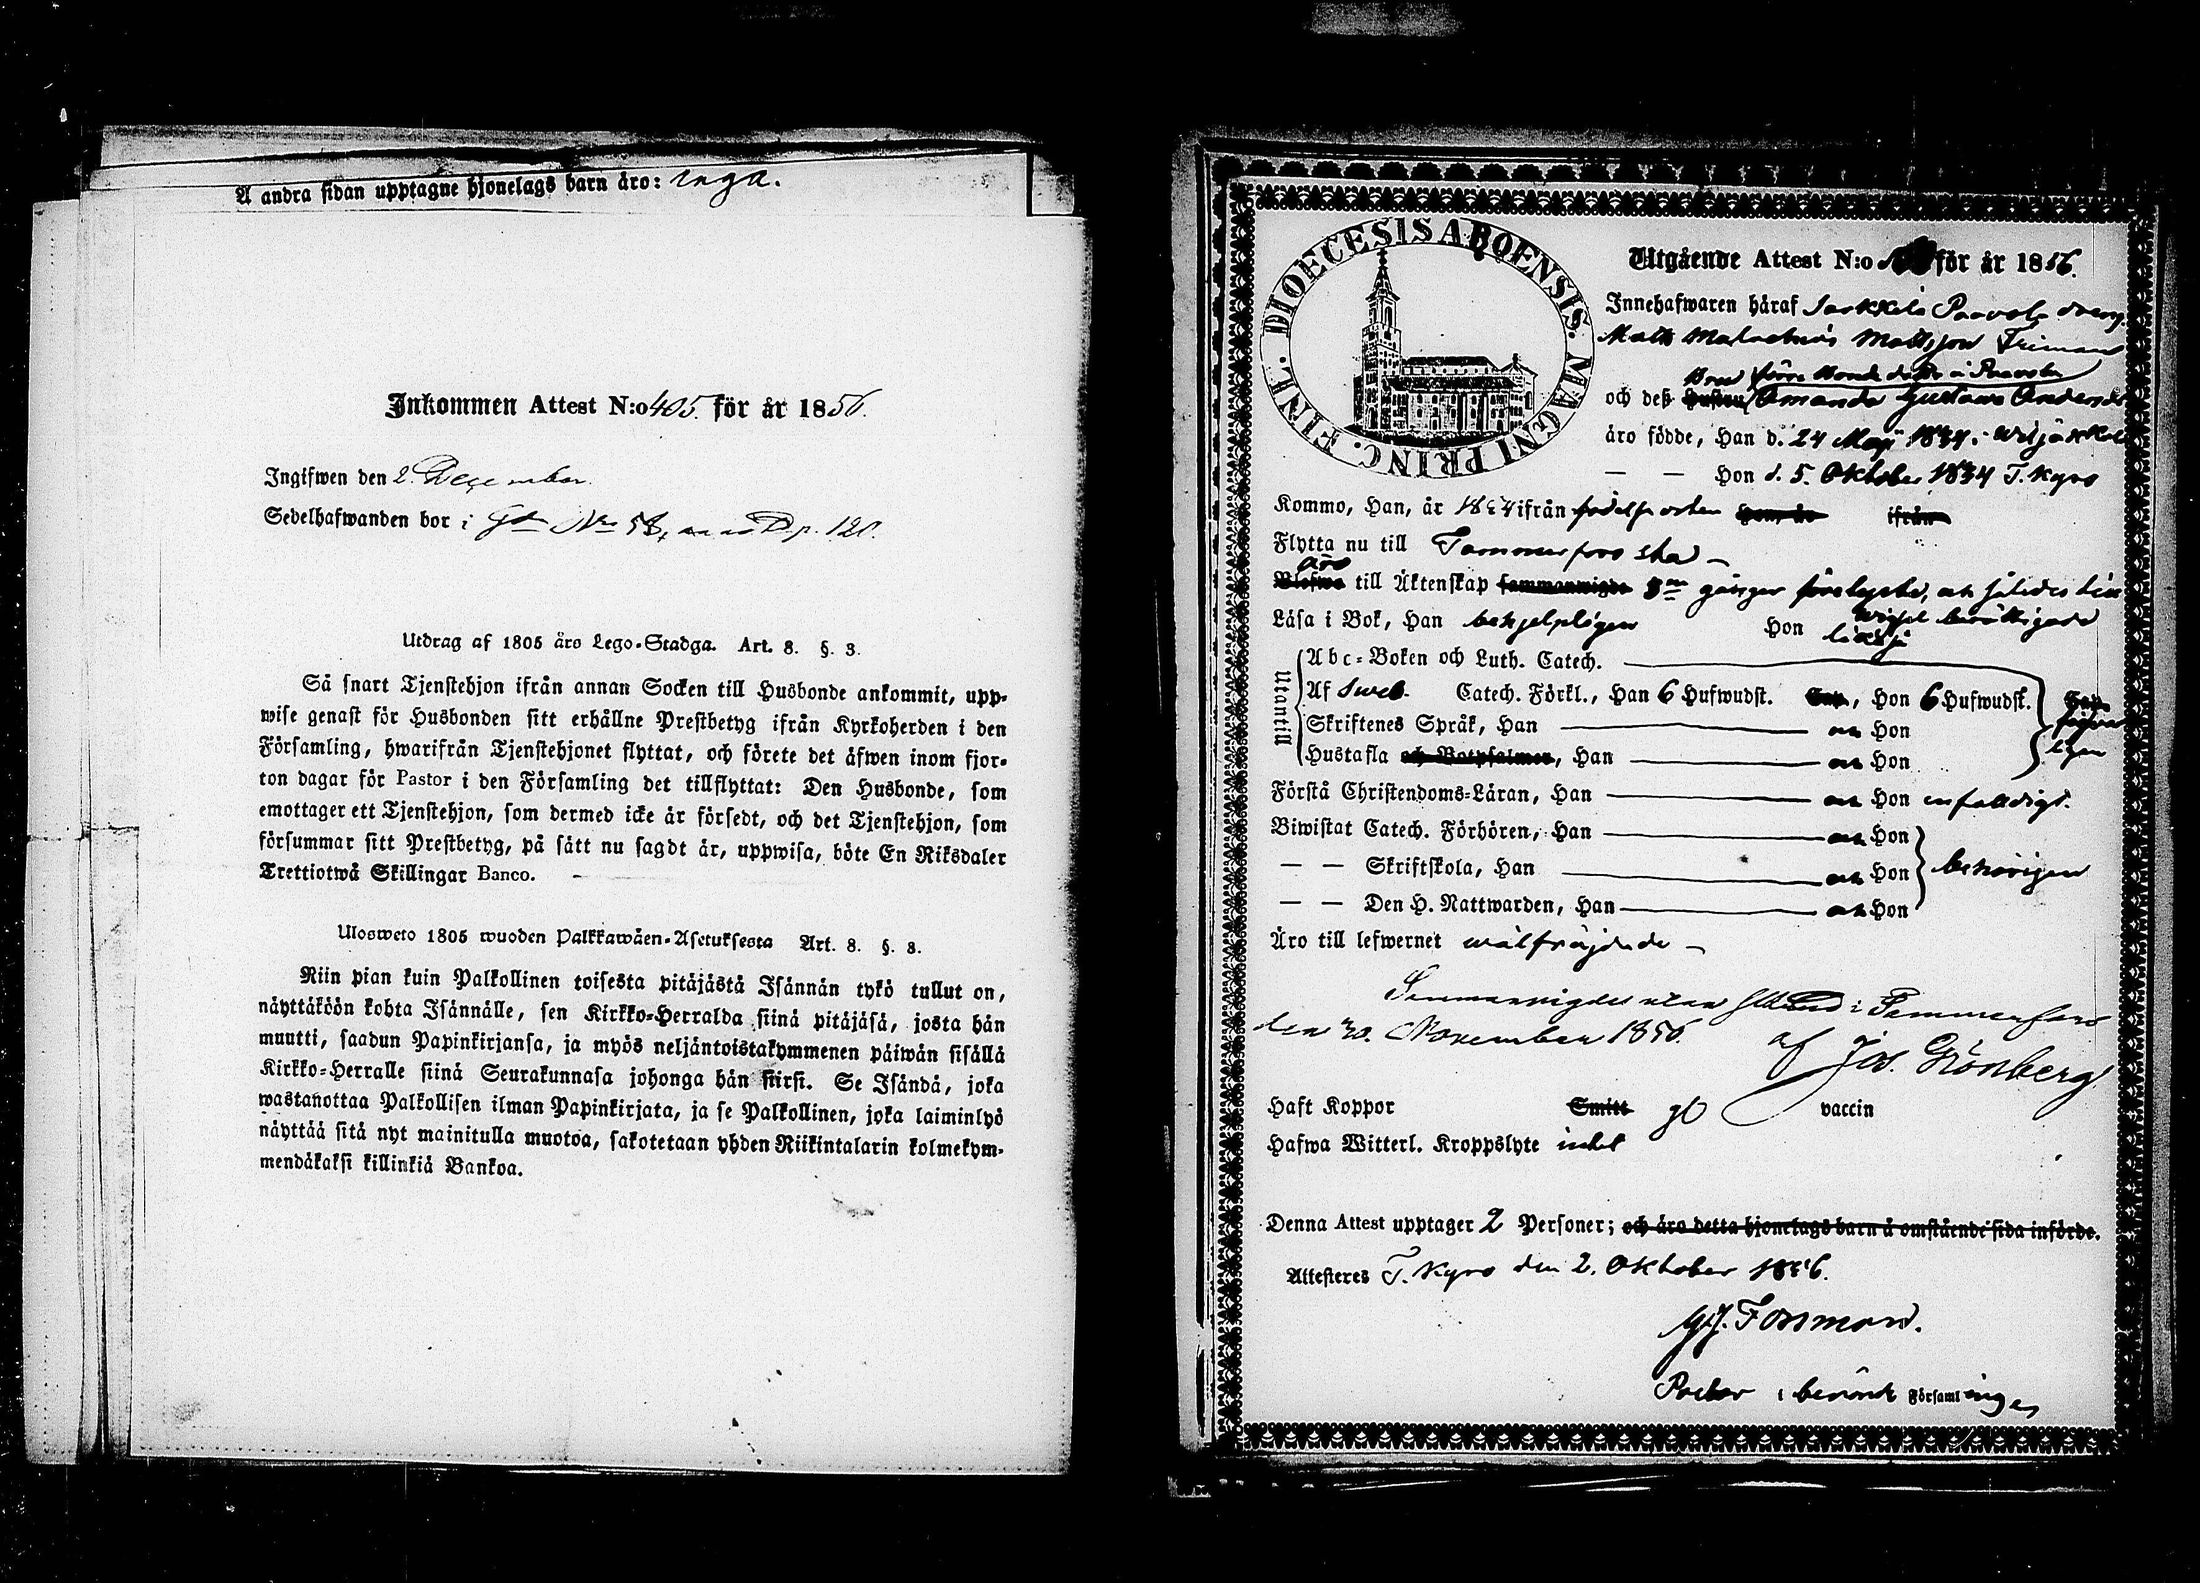 Å andra sidan upptagne hjonelags barn äro: inga.
Inkommen Attest N:o 405. för år 1856.
Ingifwen den 2. December.
Sedelhafwanden bor i Gd No 58, p. 120.
Utdrag af 1805 års Lego-Stadga. Art. 8. §. 3.
Så snart Tjenstehjon ifrån annan Socken till Husbonde ankommit, upp-
wise genast för Husbonden sitt erhållne Prestbetyg ifrån Kyrkoherden i den
Församling, hwarifrån Tjenstehjonet flyttat, och förete det äfwen inom fjor-
ton dagar för Pastor i den Församling det tillflyttat: Den Husbonde, som
emottager ett Tjenstehjon, som dermed icke är försedt, och det Tjenstehjon, som
försummar sitt Prestbetyg, på sätt nu sagdt är, uppwisa, böte En Riksdaler
Trettiotwå Skillingar Banco.
Ulosweto 1805 wuoden Palkkawäen-Asetuksesta Art. 8. §. 3.
Niin pian kuin Palkollinen toisesta pitäjästä Isännän tykö tullut on,
näyttäköön kohta Isännälle, sen Kirkko-Herralda siinä pitäjäsä, josta hän
muutti, saadun Papinkirjansa, ja myös neljäntoistakymmenen päiwän sisällä
Kirkko-Herralle siinä Seurakunnasa johonga hän siirsi. Se Isändä, joka
wastanottaa Palkollisen ilman Papinkirjata, ja se Palkollinen, joka laiminlyö
näyttää sitä nyt mainitulla muotoa, sakotetaan yhden Riikintalarin kolmekym-
mendäkaksi killinkiä Bankoa.
DIOECESIS ABOENSIS. MAGNI PRINC. FINL.
Utgående Attest N:o för år 1856.
Innehafwaren häraf Sarkkila Paavola dreng
Matts Mattsson Friman
Brud
och deß Hustru Amanda Gustava Andersdr
äro födde, Han d. 24 Maj 1834 i
— — Hon d. 5. Oktober 1834 T. Kyro
Kommo, Han, år ifrån födelseorten Hon, år ifrån
Flytta nu till Tammerfors stad —
äro
Blefwo till Äktenskap sammanwigde 3ne gånger förelyste, och således till
wigsel berättigade
Läsa i Bok, Han behjelpligen Hon
Utantill
Abc-Boken och Luth. Catech.
Af Sweb. Catech. Förkl., Han 6 Hufwudst. Cap., Hon 6 Hufwudst. Cap.
Skriftenes Språk, Han och Hon
Hustafla och Botpsalmer, Han och Hon
Förstå Christendoms-Läran, Han och Hon enfaldigt.
Biwistat Catech. Förhören, Han och Hon
— — Skriftskola, Han och Hon behörigen
— — Den H. Nattwarden, Han och Hon
Äro till lefwernet wälfräjdade —
Sammanvigdes i Tammerfors
den 30. November 1856. af Jos. Grönberg.
Haft Koppor Smitt vaccin
Hafwa Witterl. Kroppslyte intet
Denna Attest upptager 2 Personer; och äro detta hjonelags barn å omstående sida införde.
Attesteres T. Kyro den 2. Oktober 1856.
G.J. Forsman.
Pastor i berörde Församlingen